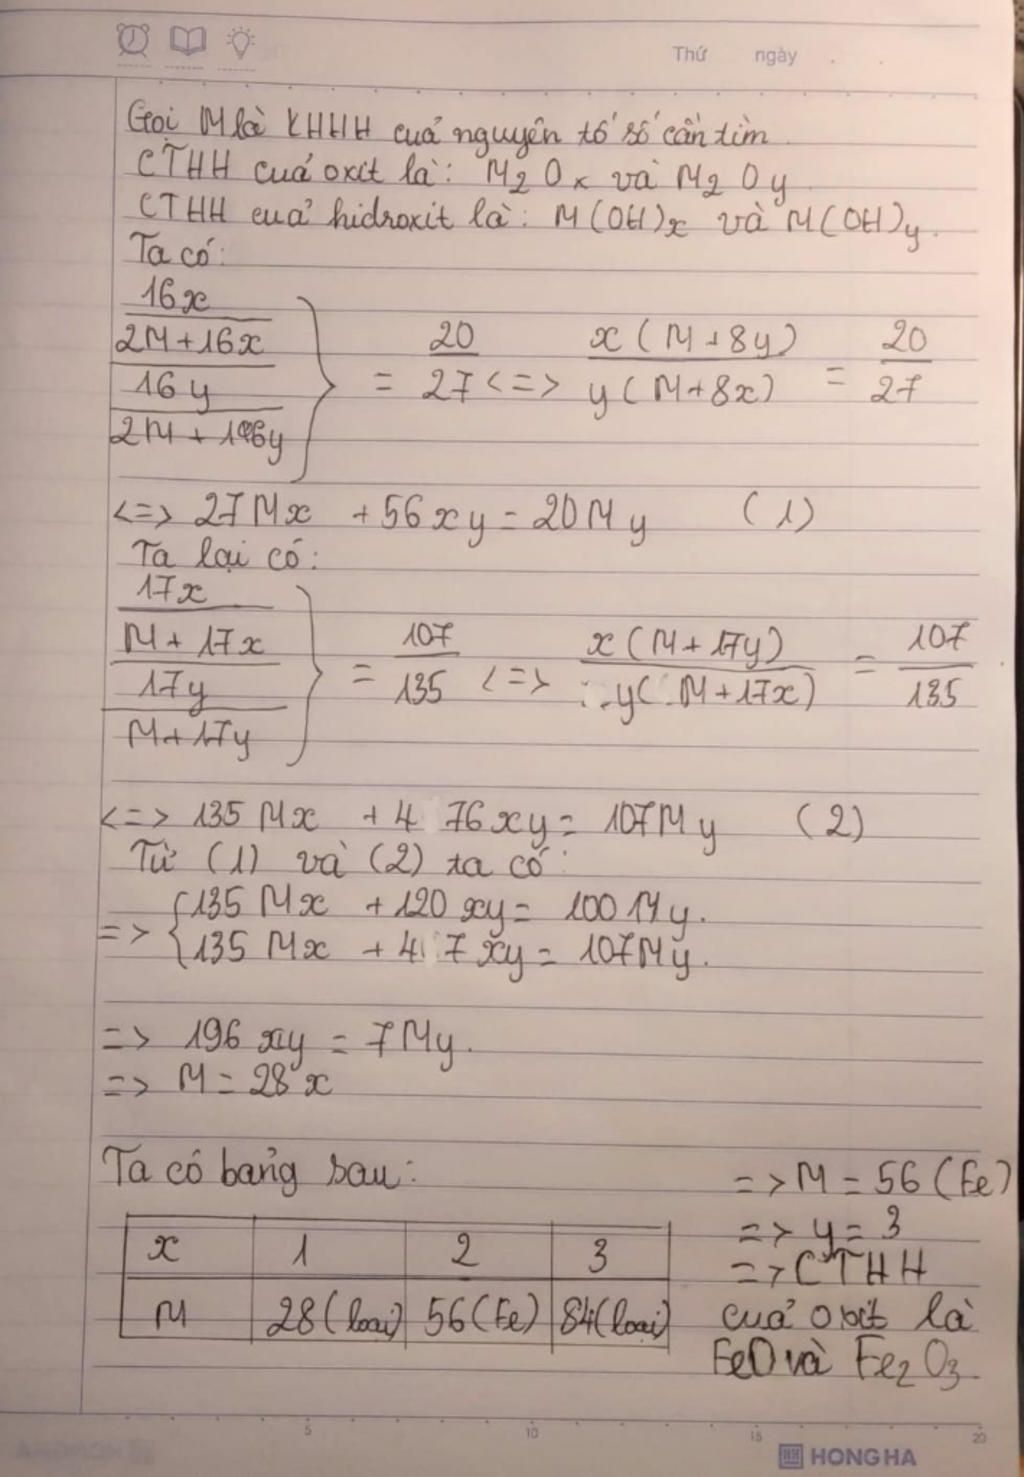 Thứ ngày
Gọi M là KHHH của nguyên tố số cần tìm
CTHH của oxit là: M₂Oₓ và M₂Oy
CTHH của hidroxit là: M(OH)ₓ và M(OH)y.
Ta có:
16x / (2M+16x) / 16y / (2M+16y) } = 20/27 <=> x(M+8y) / y(M+8x) = 20/27
<=> 27Mx + 56xy = 20My (1)
Ta lại có:
17x / (M+17x) / 17y / (M+17y) } = 107/135 <=> x(M+17y) / y(M+17x) = 107/135
<=> 135Mx + 476xy = 107My (2)
Từ (1) và (2) ta có:
=> { 135Mx + 120xy = 100My.
135Mx + 47xy = 107My.
=> 196xy = 7My.
=> M = 28x
Ta có bảng sau:
x 1 2 3
M 28(loại) 56(Fe) 84(loại)
=> M = 56(Fe)
=> y = 3
=> CTHH
của oxit là
FeO và Fe₂O₃.
5 10 15 20
HONG HA